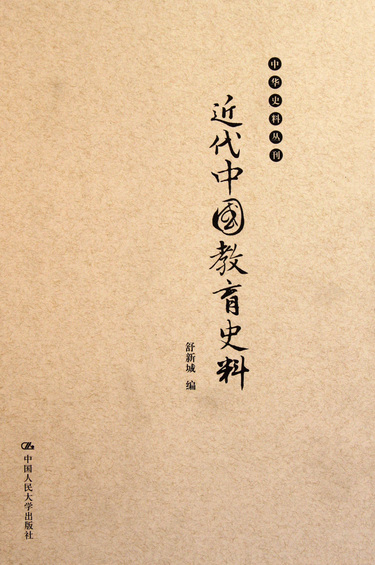 中华史料丛刊
近代中国教育史料
舒新城 编
中国人民大学出版社